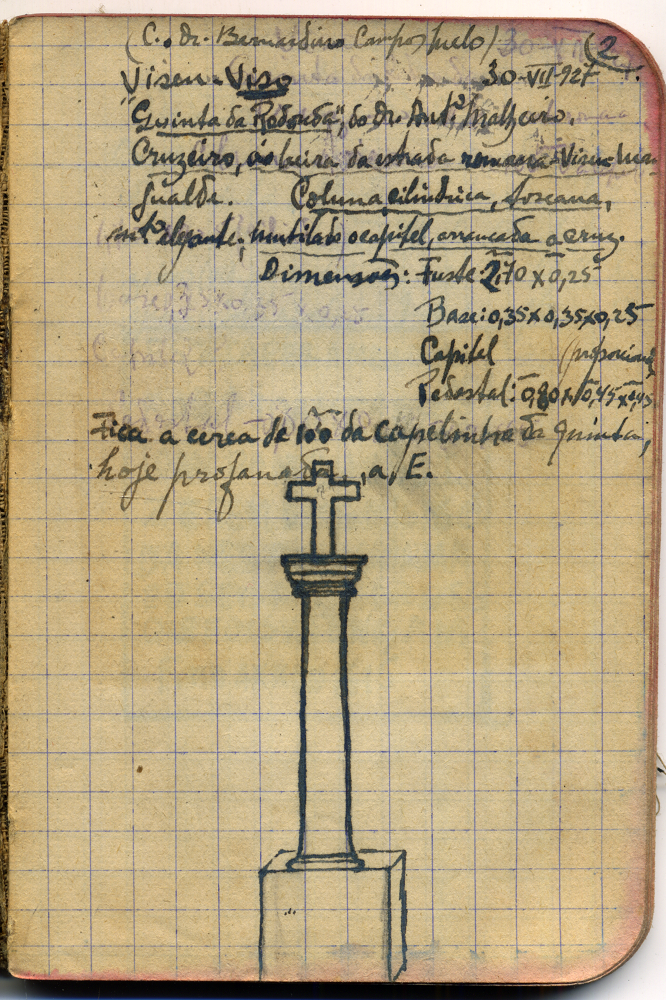 (C. Dr. Bernardino Campos Melo) (2
Viseu-Viso 30-VII-927.
"Quinta da Redonda", do Dr. Antº Malheiro.
Cruzeiro, à beira da estrada romana-Viseu-Man-
gualde. Coluna cilíndrica, toscana,
mtº elegante; mutilado o capitel, arrancada a cruz.
Dimensões: Fuste 2,70 x 0,25
Base: 0,35 x 0,35 x 0,25
Capitel
Pedestal: 0,80 x 0,45 x 0,45
Fica a cerca de 100 da capelinha da Quinta,
hoje profanada, a E.